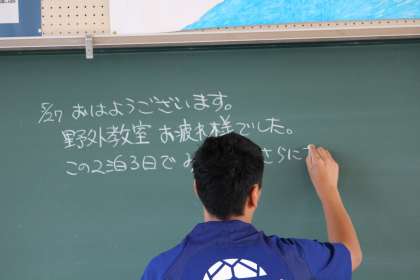 5/27 おはようございます。
野外教室 お疲れ様でした。
この2泊3日で さらに